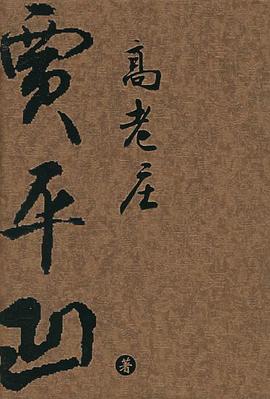 高老庄
贾平凹
著